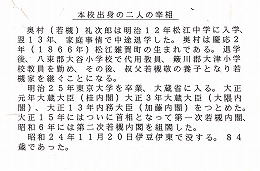 本校出身の二人の宰相
奥村（若槻）礼次郎は明治12年松江中学に入学、
翌13年、家庭事情で中途退学した。奥村は慶応2
年（1866年）松江雑賀町の生まれである。退学
後、八束郡大谷小学校で代用教員、簸川郡大津小学
校教員を勤め、その後、叔父若槻敬の養子となり若
槻家を継ぐことになる。
明治25年東京大学を卒業、大蔵省に入る。大正
元年大蔵大臣（桂内閣）大正3年大蔵大臣（大隈内
閣）、大正13年内務大臣（加藤内閣）をつとめた。
大正15年にはついに首相となって第一次若槻内閣、
昭和6年には第二次若槻内閣を組閣した。
昭和24年11月20日伊豆伊東で没する。84
歳であった。